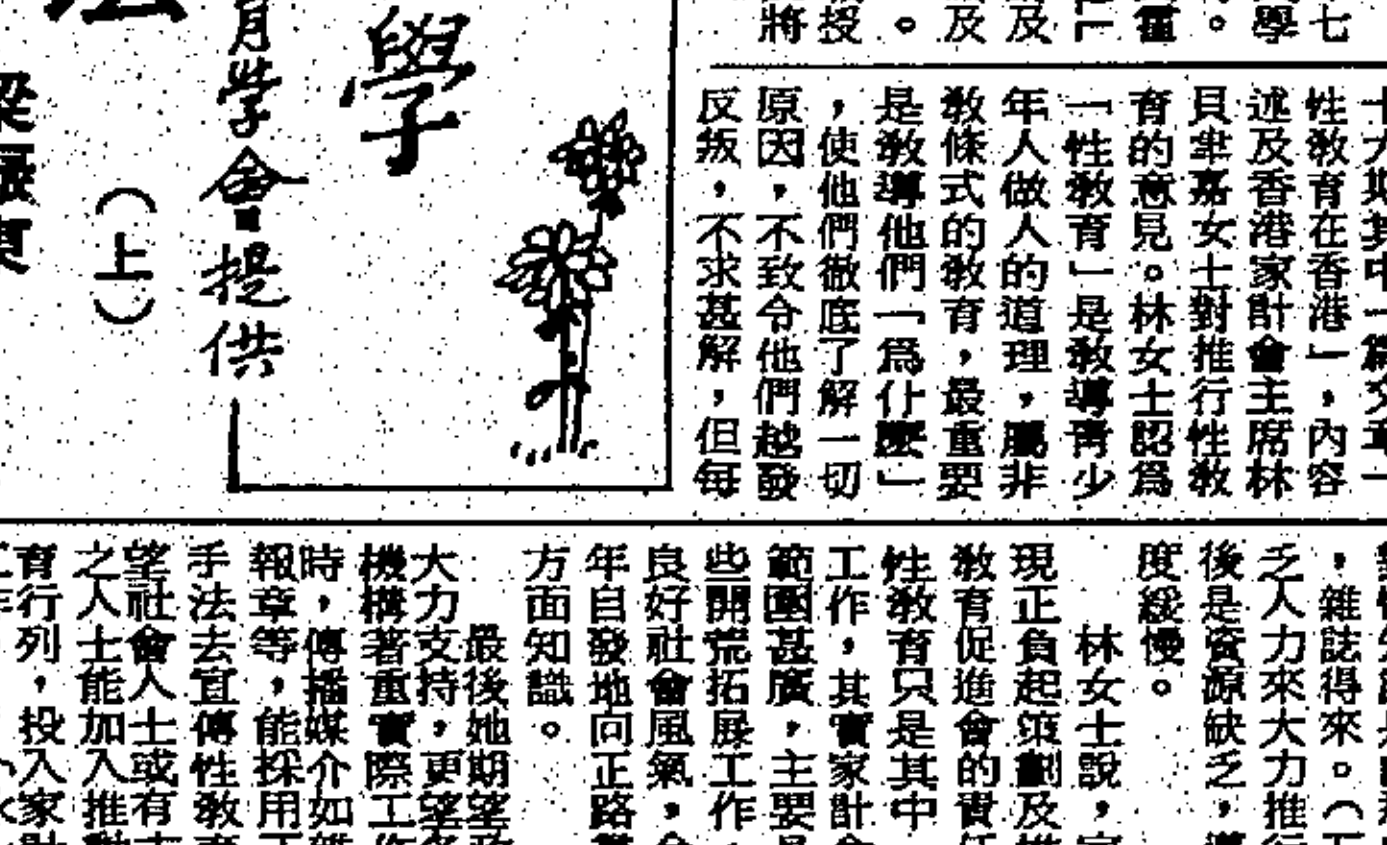 七
學
。
霍
及
及
。
授
將
十六期其中一篇文章「
性教育在香港」，內容
述及香港家計會主席林
貝聿嘉女士對推行性教
育的意見。林女士認爲
「性教育」是教導靑少
年人做人的道理，屬非
教條式的教育，最重要
是教導他們「爲什麼」
，使他們徹底了解一切
原因，不致令他們越發
反叛，不求甚解，但每
學
育学會提供
（上）
法
梁
東
，雜誌得來。（
乏人力來大力推行
後是資源缺乏，導
度緩慢。
林女士說，家
現正負起策劃及推
教育促進會的責任
性教育只是其中
工作，其實家計會
範圍甚廣，主要是
些開荒拓展工作，
良好社會風氣，令
年自發地向正路
方面知識。
最後她期望政
大力支持，更望各
機構著重實際工作
時，傳播媒介如雜
報章等，能採用
手法去宣傳性教育
望社會人士或有
之人士能加入推動
育行列，投入家計
工作